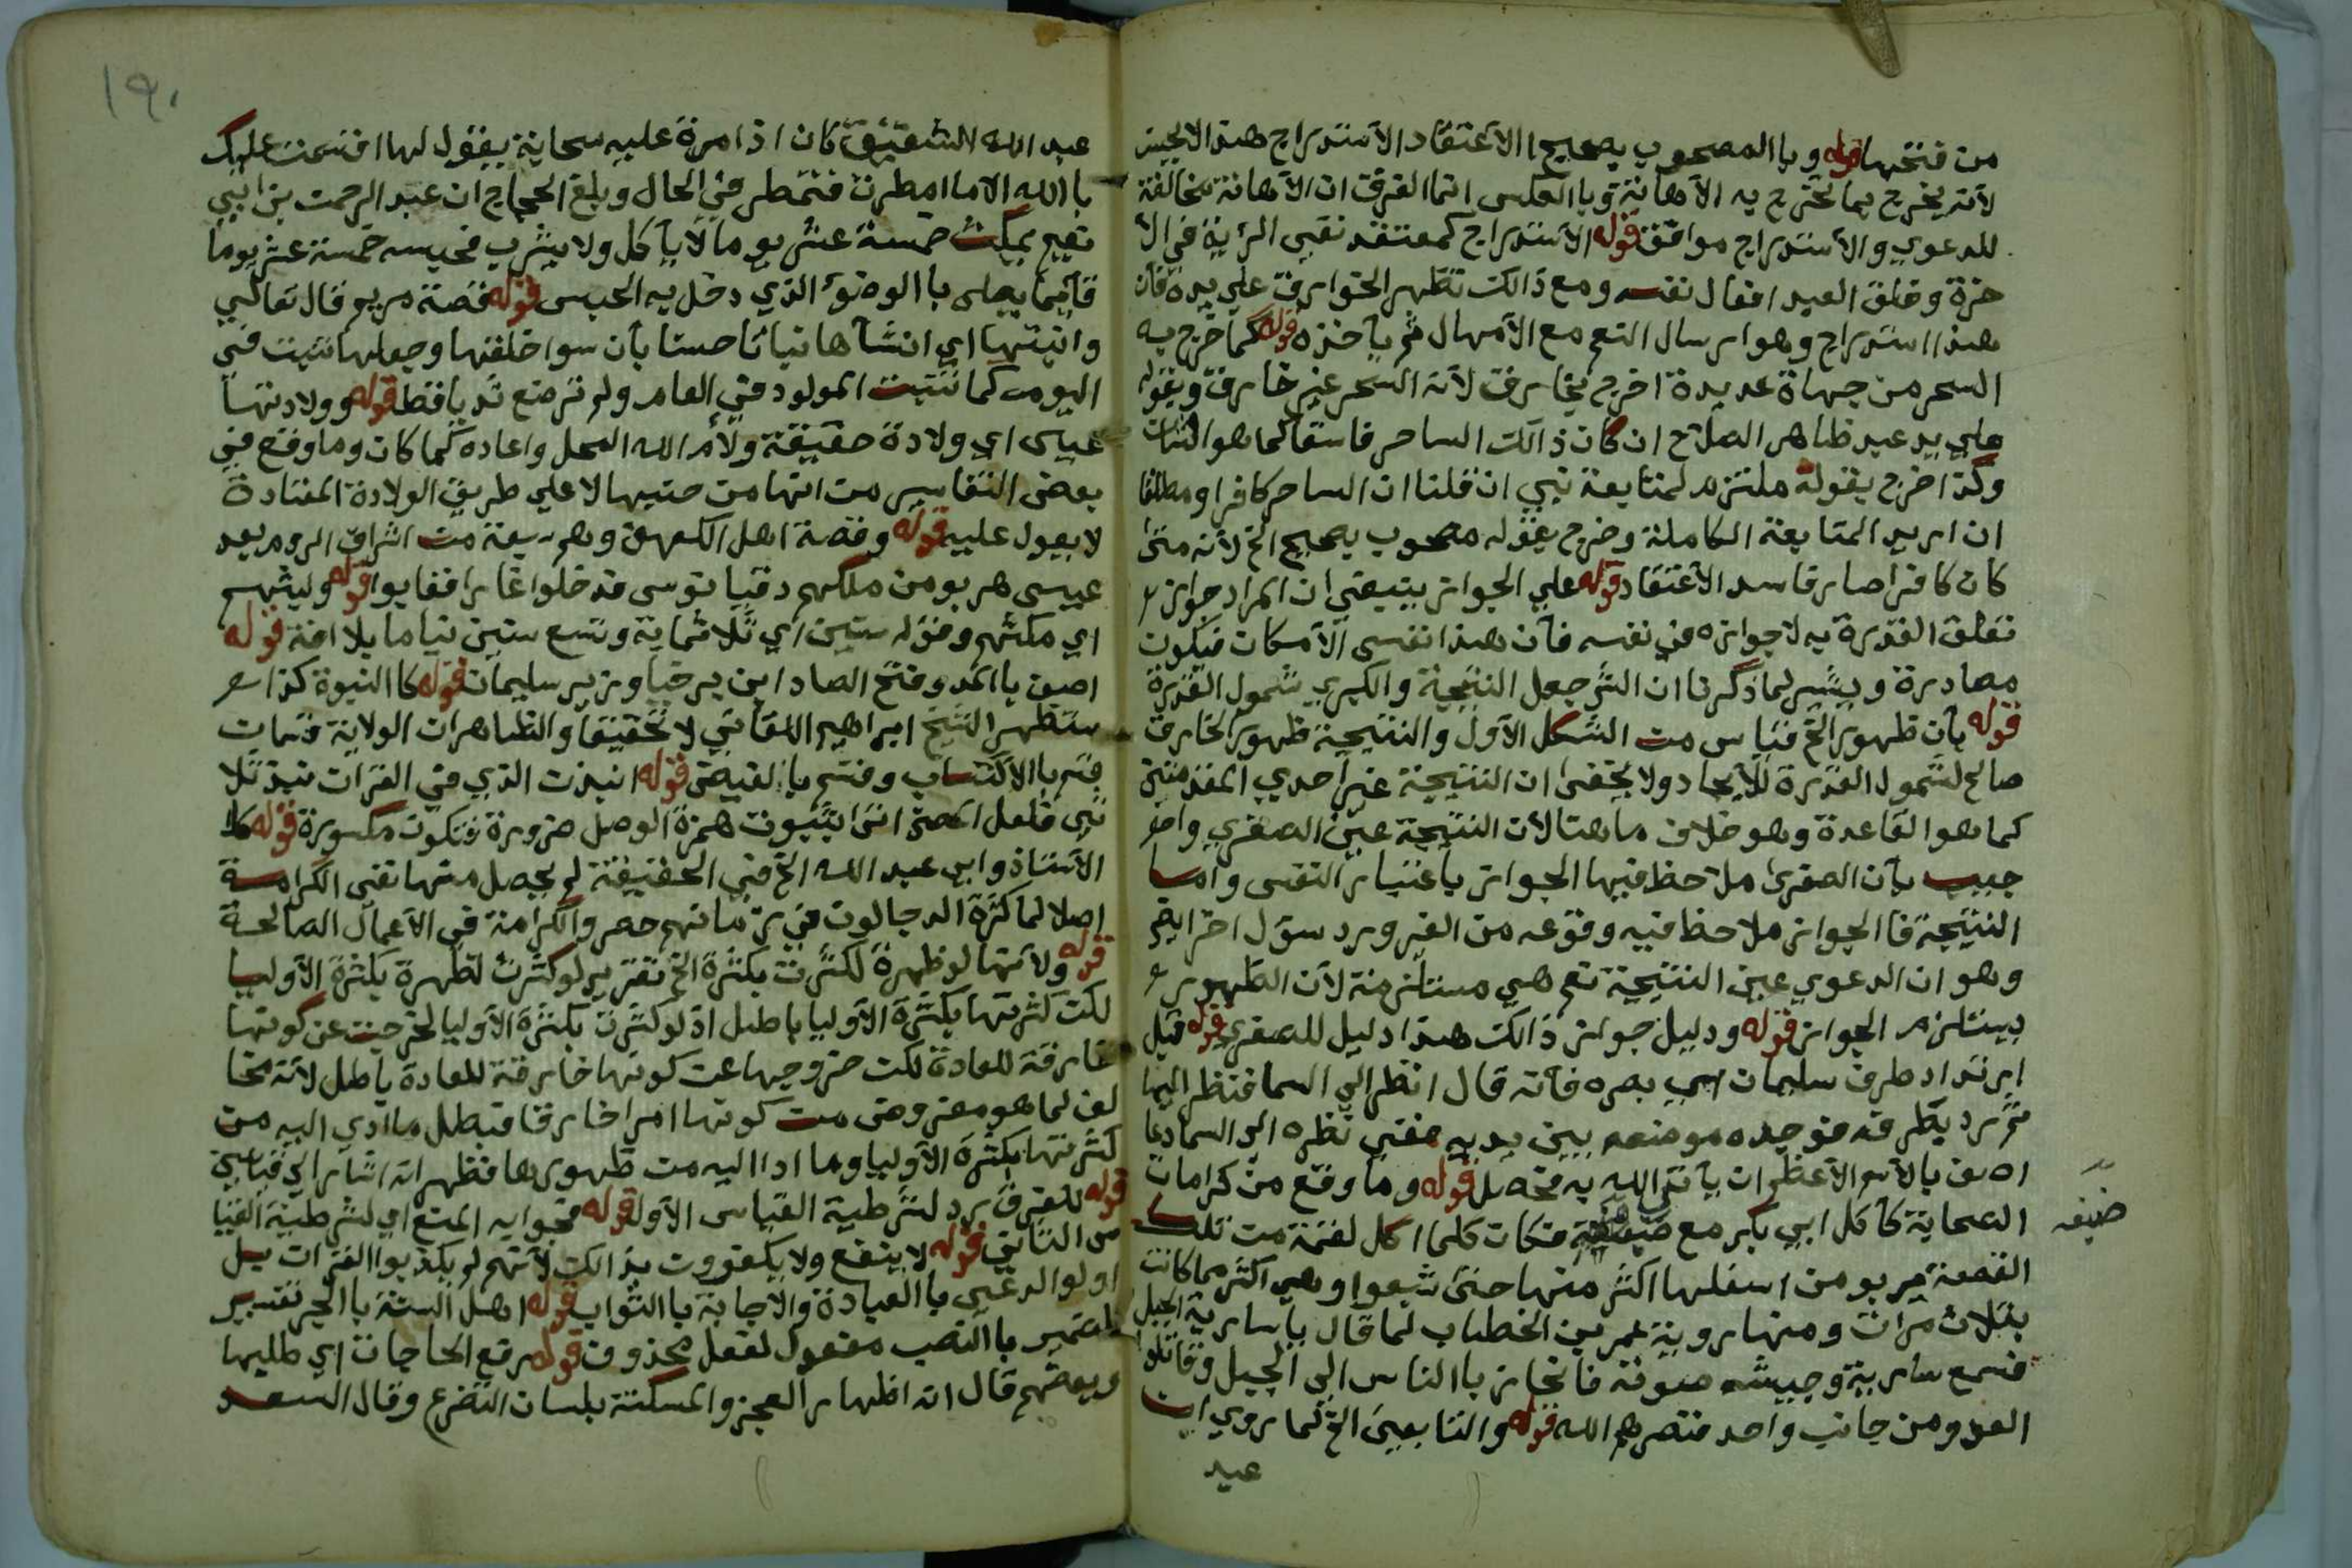 من فتحها قوله وبالمصحوب بصحيح الاعتقاد الاستدراج هذا لا يحسن
لانه يخرج بما تخرج به الاهانة وبالعكس انما الفرق ان الاهانة مخالفة
للدعوي والاستدراج موافق قوله الاستدراج كمعتقد نفي الرئية في الا
خرة وخلق العبد افعال نفسه ومع ذالك تظهر الخوارق علي يده فان
هذا استدراج وهو ارسال النعم مع الامهال ثم ياخذه قوله كما خرج به
السحر من جهاة عديدة اخرج بخارق لانه السحر غير خارق وبقوله
علي يد عبد ظاهر الصلاح ان كان ذالك الساحر فاسقا كما هو الشان
وكذا خرج بقوله ملتزم لمتابعة نبي ان قلنا ان الساحر كافر او مطلقا
ان اريد المتابعة الكاملة وخرج بقوله مصحوب بصحيح الخ لانه متى
كان كافرا صار فاسد الاعتقاد قوله علي الجواز ينبغي ان المراد جواز
تعلق القدرة به لا جوازه في نفسه فان هذا نفس الامكان فيكون
مصادرة ويشير لما ذكرنا ان الش جعل النتيجة والكبري شمول القدرة
قوله بان ظهور الخ قياس من الشكل الاول والنتيجة ظهور الخارق
صالح لشمول القدرة للايجاد ولا يخفى ان النتيجة غير احدي المقدمتين
كما هو القاعدة وهو خلاف ما هنا لان النتيجة عين الصغري واجـ
جيب بان الصغرى ملاحظ فيها الجواز باعتبار النفس واما
النتيجة فالجواز ملاحظ فيه وقوعه من الغير ويرد سؤل اخر ايضا
وهو ان الدعوي عين النتيجة نعم هي مستلزمة لان الظهور
يستلزم الجواز قوله ودليل جواز ذالك هذا دليل للصغري قوله قبل
ارتداد طرف سليمان اي بصره فانه قال انظر الي السما فنظر اليها
ثم رد بطرفه فوجده موضعه بين يديه ففي نظره الي السما دعا
اصف بالاسم الاعظم ان ياتي الله به فحصل قوله وما وقع من كرامات
الصحابة كاكل ابي بكر مع فكان كلما اكل لقمة من تلك
ضيفه
القصعة يربو من اسفلها اكثر منها حتى شبعوا وهي اكثر مما كانت
بثلاث مرات ومنها روية عمر بن الخطاب لما قال يا سارية الجبل
فسمع سارية وجيشه صوته فانحاز بالناس الي الجبل وقاتلوا
العدو من جانب واحد فنصرهم الله قوله والتابعين الخ كما روي ان
عبد
١٩٠
عبد الله الشقيق كان اذا مرة عليه سحابة يقول لها اقسمت عليك
بالله الا ما امطرت فتمطر في الحال وبلغ الحجاج ان عبد الرحمن بن ابي
نعيم يمكث خمسة عشر يوما لا ياكل ولا يشرب فحبسه خمسة عشر يوما
قايما يصلي بالوضوء الذي دخل به الحبس قوله قصة مريم قال تعالي
وانبتها اي انشاها نباتا حسنا بان سوا خلقها وجعلها تنبت في
اليوم كما تنبت المولود في العام ولم ترضع ثديا قط قوله وولادتها
عيسى اي ولادة حقيقة ولأم الله المحل واعاده كما كان وما وقع في
بعض التفاسير من انها من جنبها لا علي طريق الولادة المعتادة
لا يعول عليه قوله وقصة اهل الكهف وهم سبعة من اشراف الروم بعد
عيسى هربو من ملكهم دقيانوس قد خلوا غارا فغابوا قوله ولبثهم
اي مكثهم وقوله سنين اي ثلاثماية وتسع سنين نياما بلا افة قوله
اصف بالمد وفتح الصاد ابن برخيا وزير سليمان قوله كالنبوة كذا
ستظهر الشيخ ابراهيم اللقاني لا تحقيقا والظاهر ان الولاية قسمان
قسم بالاكتساب وقسم بالفيض قوله انبذت الذي في القران نبذ ثلا
ثي فلعل انتى بثبوت همزة الوصل ضرورة فتكون مكسورة قوله كالا
الاستاذ وابي عبد الله الخ في الحقيقة لم يحصل منها نفي الكرامة
اصلا لما كثرة الدجالون في زمانهم حصروا الكرامة في الاعمال الصالحة
قوله ولانها لو ظهرة لكثرت بكثرة الخ تقرير لو كثرت لظهرة بكثرة الاوليا
لكن كثرتها بكثرة الاوليا باطل اذ لو كثرت بكثرة الاوليا لخرجت عن كونها
خارقة للعادة لكن خروجها عن كونها خارقة للعادة باطل لانه مخا
لف لما هو مفروض من كونها امرا خارقا فبطل ما ادي اليه من
كثرتها بكثرة الاوليا وما ادا اليه من ظهورها فظهر انه اشار الي قياسين
قوله للفرق يرد لشرطية القياس الاول قوله فجوابه المنع اي لشرطية القيا
س الثاني قوله لا ينفع ولا يكفرون بذالك لانهم لم يكذبوا القران بل
اولوا الدعي بالعبادة والاجابة بالثواب قوله اهل السنة بالجر تفسير
للضمير بالنصب مفعول لفعل محذوف قوله رفع الحاجات اي طلبها
وبعضهم قال انه اظهار العجز والمسكنة بلسان التضرع وقال السعد